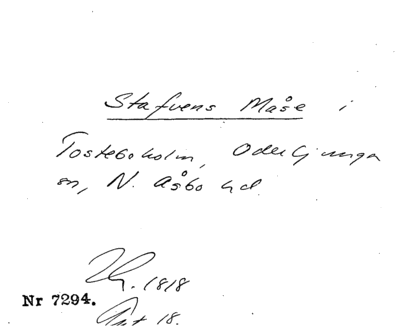 Stafvens Måse i
Tosteboholm, Oderljunga
sn, N. Åsbo hd.
1818
Nr 7294.
Akt 18.